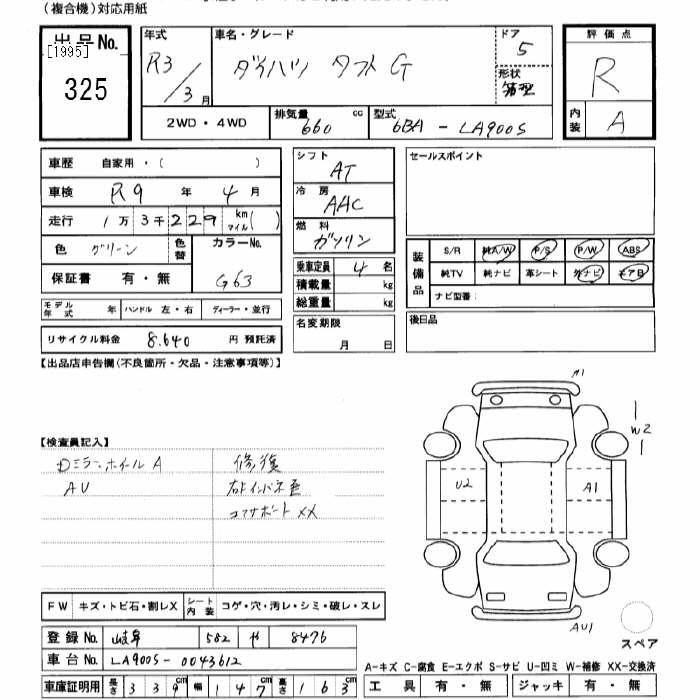 (複合機)対応用紙
出品No.
[1995]
325
年式
R3/3月
車名・グレード
ダイハツ タフト G
ドア
5
形状
箱型
評価点
R
内装
A
2WD・4WD
排気量
660 cc
型式
6BA - LA900S
車歴 自家用・( )
車検 R9 年 4 月
走行 1万3千229 km マイル( )
色 グリーン 色替
カラーNo.
G63
保証書 有・無
モデル年式 年 ハンドル 左・右 ディーラー・並行
リサイクル料金 8,640 円 預託済
シフト
AT
冷房
AAC
燃料
ガソリン
乗車定員 4 名
積載量 kg
総重量 kg
名変期限
月 日
セールスポイント
装備品
S/R 純A/W P/S P/W ABS
純TV 純ナビ 革シート 外ナビ エアB
ナビ型番:
後日品
【出品店申告欄(不良箇所・欠品・注意事項等)】
【検査員記入】
Dミラー、ホイール A
AU
修復
右ドインパネ歪
コアサポート XX
A1
W2
U2
A1
AU1
スペア
FW キズ・トビ石・割レX シート内装 コゲ・穴・汚レ・シミ・破レ・スレ
登録No. 岐阜 582 や 8476
車台No. LA900S - 0043612
車庫証明用 長さ 339cm 幅 147cm 高さ 163cm
A-キズ C-腐食 E-エクボ S-サビ U-凹ミ W-補修 XX-交換済
工具 有・無 ジャッキ 有・無